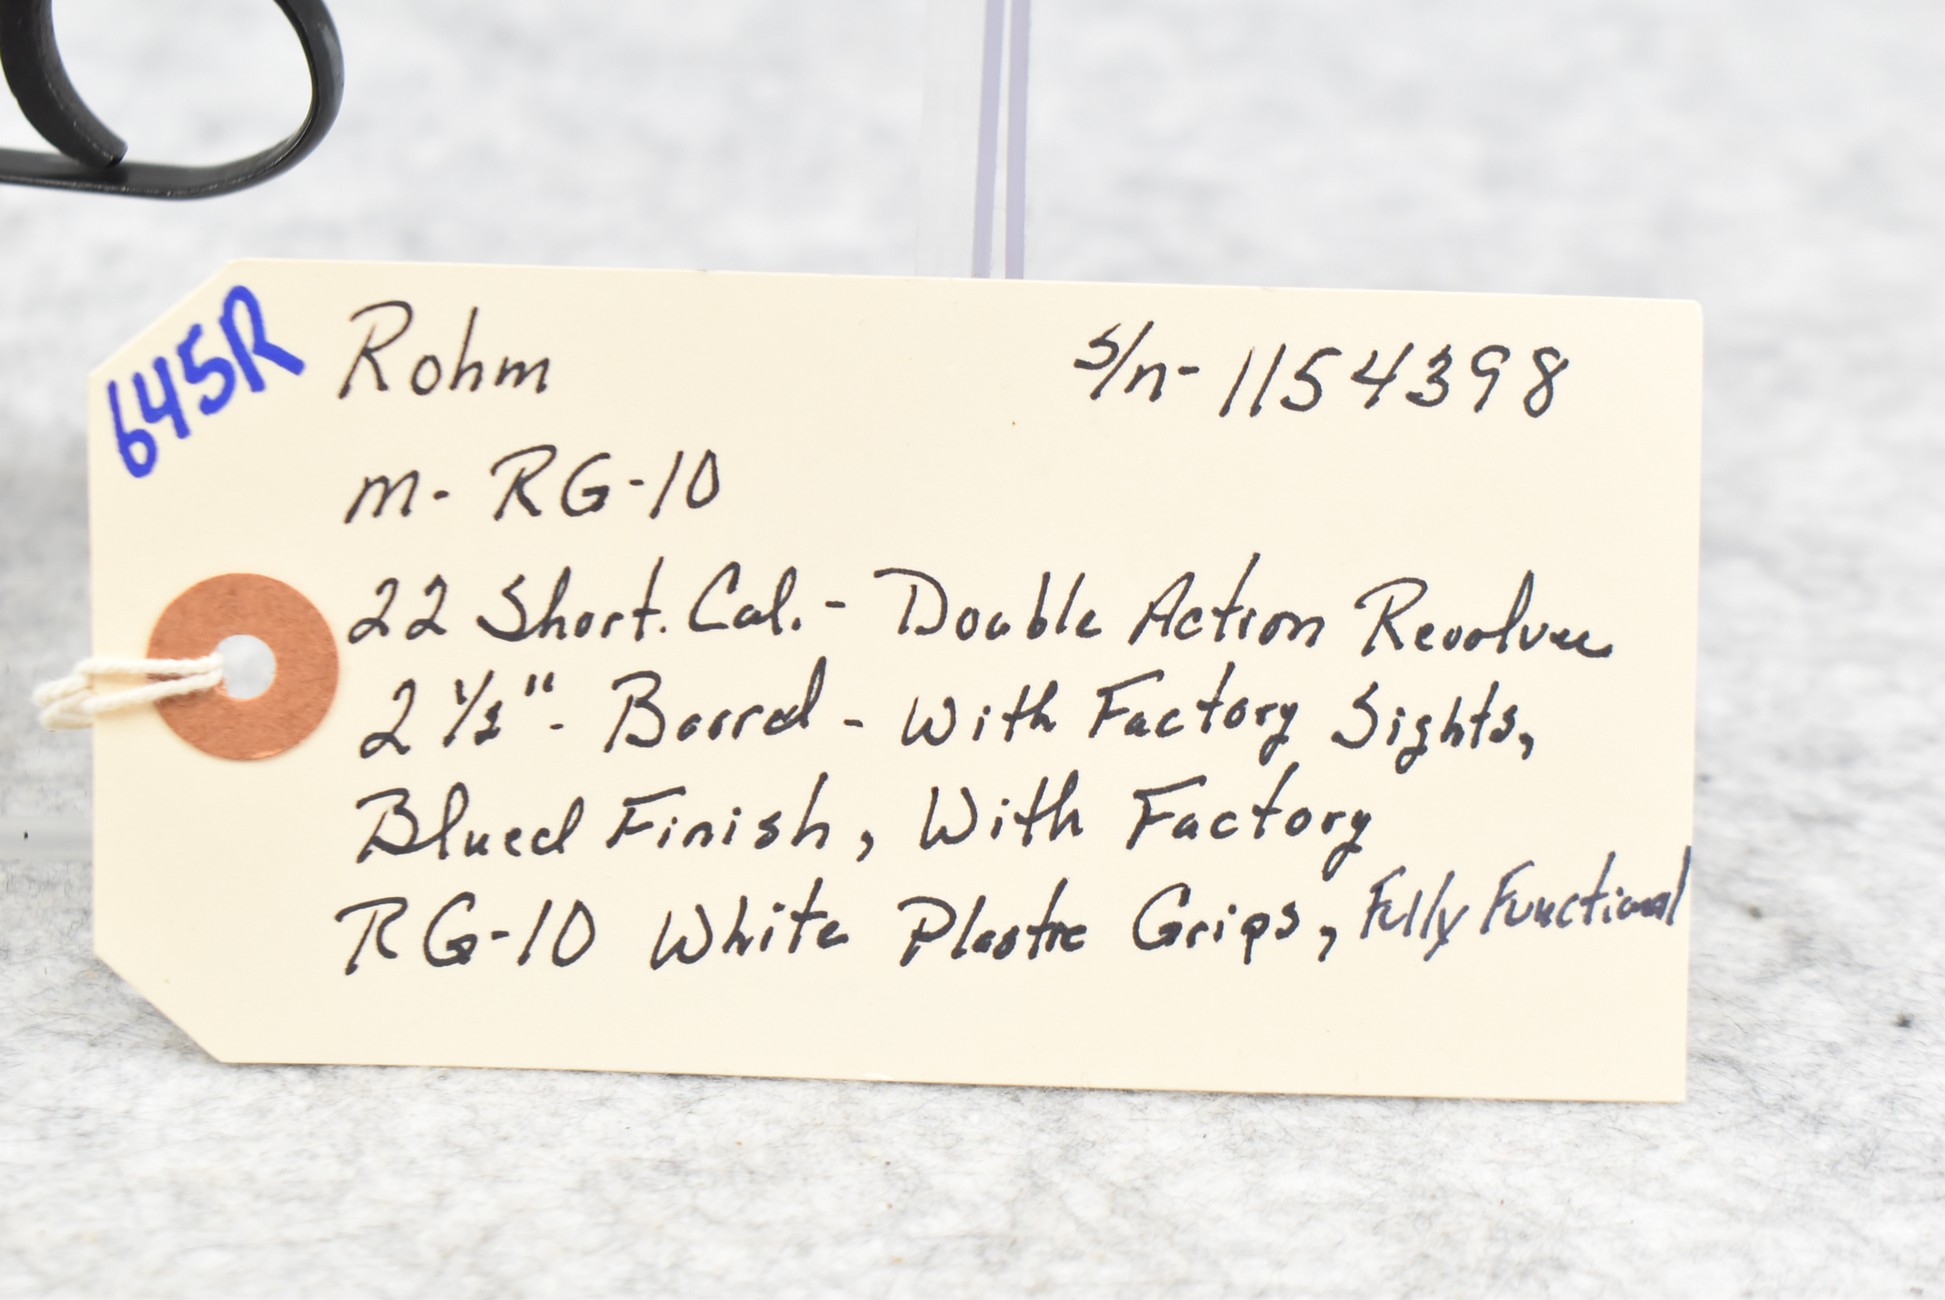 645R
Rohm s/n- 1154398
m- RG-10
22 Short. Cal. - Double Action Revolver
2 1/2" - Barrel - With Factory Sights,
Blued Finish, With Factory
RG-10 White Plastic Grips, Fully Functional